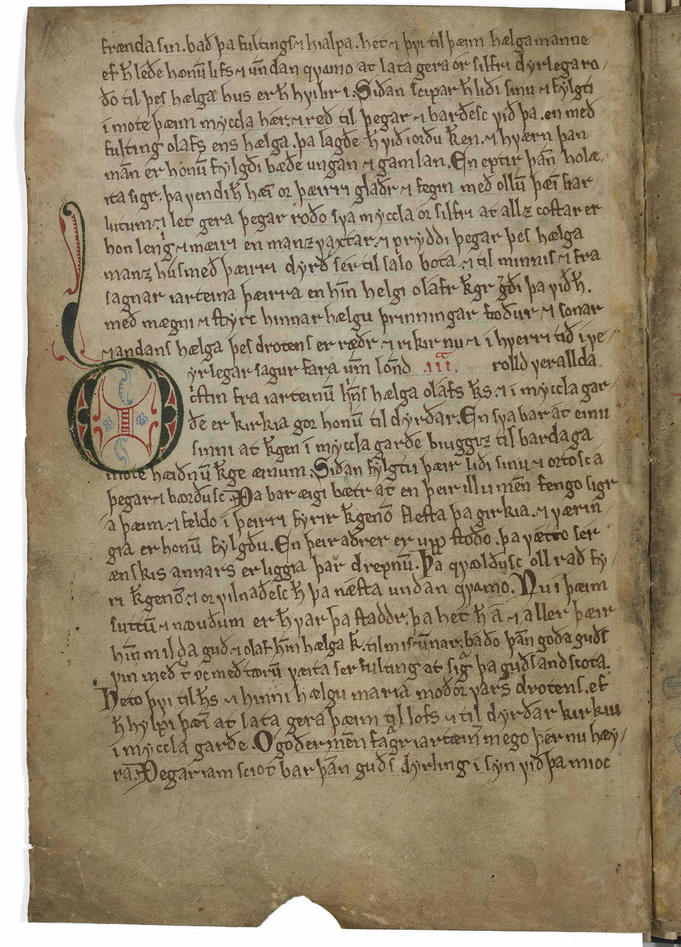 frænda sin. bað þa fultings ⁊ hialpa. het ⁊ þvi til þæim hælga manne
ef h̄ leðe honū lifs ⁊ undan qvamo at lata gera or silfri dyrlega ro-
ðo til þes hælga hus er h̄ hvilir i. Siðan scipar h̄ liði sinu ⁊ fylgti
i mote þæim myccla hær. ⁊ reð til þegar ⁊ barðesc við þa. en með
fulting olafs ens hælga. þa lagðe h̄ við iorðu k̄gen. ⁊ hværn þan
man er honū fylgði bæðe ungan ⁊ gamlan. En eptir þan holæ-
ita sigr. þa vendi h̄ hæī or þæirri glaðr ⁊ fegin með ollū þæī frar
lutum. ⁊ let gera þegar roðo sva myccla or silfri at allz costar er
hon lengri ⁊ mæiri en manz vaxtar. ⁊ prýddi þegar þes hælga
manz hus með þæirri dyrð ser til salo bota. ⁊ til minnis ⁊ fra
sagnar iarteina þæirra en hin helgi olafr k̄gr gerði þa við h̄.
með mægni ⁊ styrc hinnar hælgu þrinningar fæður ⁊ sonar
⁊ andans hælga þes drotens er ræðr ⁊ rikir nu ⁊ i hverri tið i ve-
yrlegar sagur fara um lond .iii. rolld verallda.
cstin fra iarteinū hins hælga olafs k̄s. ⁊ i myccla gar
ðe er kirkia gor honū til dyrðar. En sva bar at einu
sinni at k̄gen i myccla garðe biuggiz til bardaga
mote hæiðnū k̄ge æinum. Siðan fylgtu þæir liði sinu ⁊ ort osc a
þegar ⁊ bærðusc. Þa bar æigi bætr at en þeir illu men fengo sigr
a þæim. ⁊ feldo i þeirri fyrir k̄genō flesta þa girkia. ⁊ værin
gia er honū fylgðu. En þeir aðrer er upp stoðo. þa vætto ser
ænskis annars er liggia þar drepnū. Þa qvælðusc oll rað fy
ri k̄genō. ⁊ or vilnaðesc h̄ þa næsta undan qvamo. Nu i þæim
suttū ⁊ næuðum er h̄ var þa staddr. þa het h̄ a ⁊ aller þæir
hin milda guð ⁊ olaf hin hælga k̄. til miscunnar. baðo þan goða guðs
vin með t̄ oc með tarū væita ser fulting at sigr þa guðs andscota.
Heto þvi til h̄s ⁊ hinni hælgu maria moðor vars drotens. ef
h̄ hylpi þæī at lata gera þæim til lofs ⁊ til dyrðar kirkiu
i myccla garðe. O goðer men fagr iartæin mego þer nu hæy-
ra. Þegar iam sciot bar þan guðs dyrling i syn við þa mioc